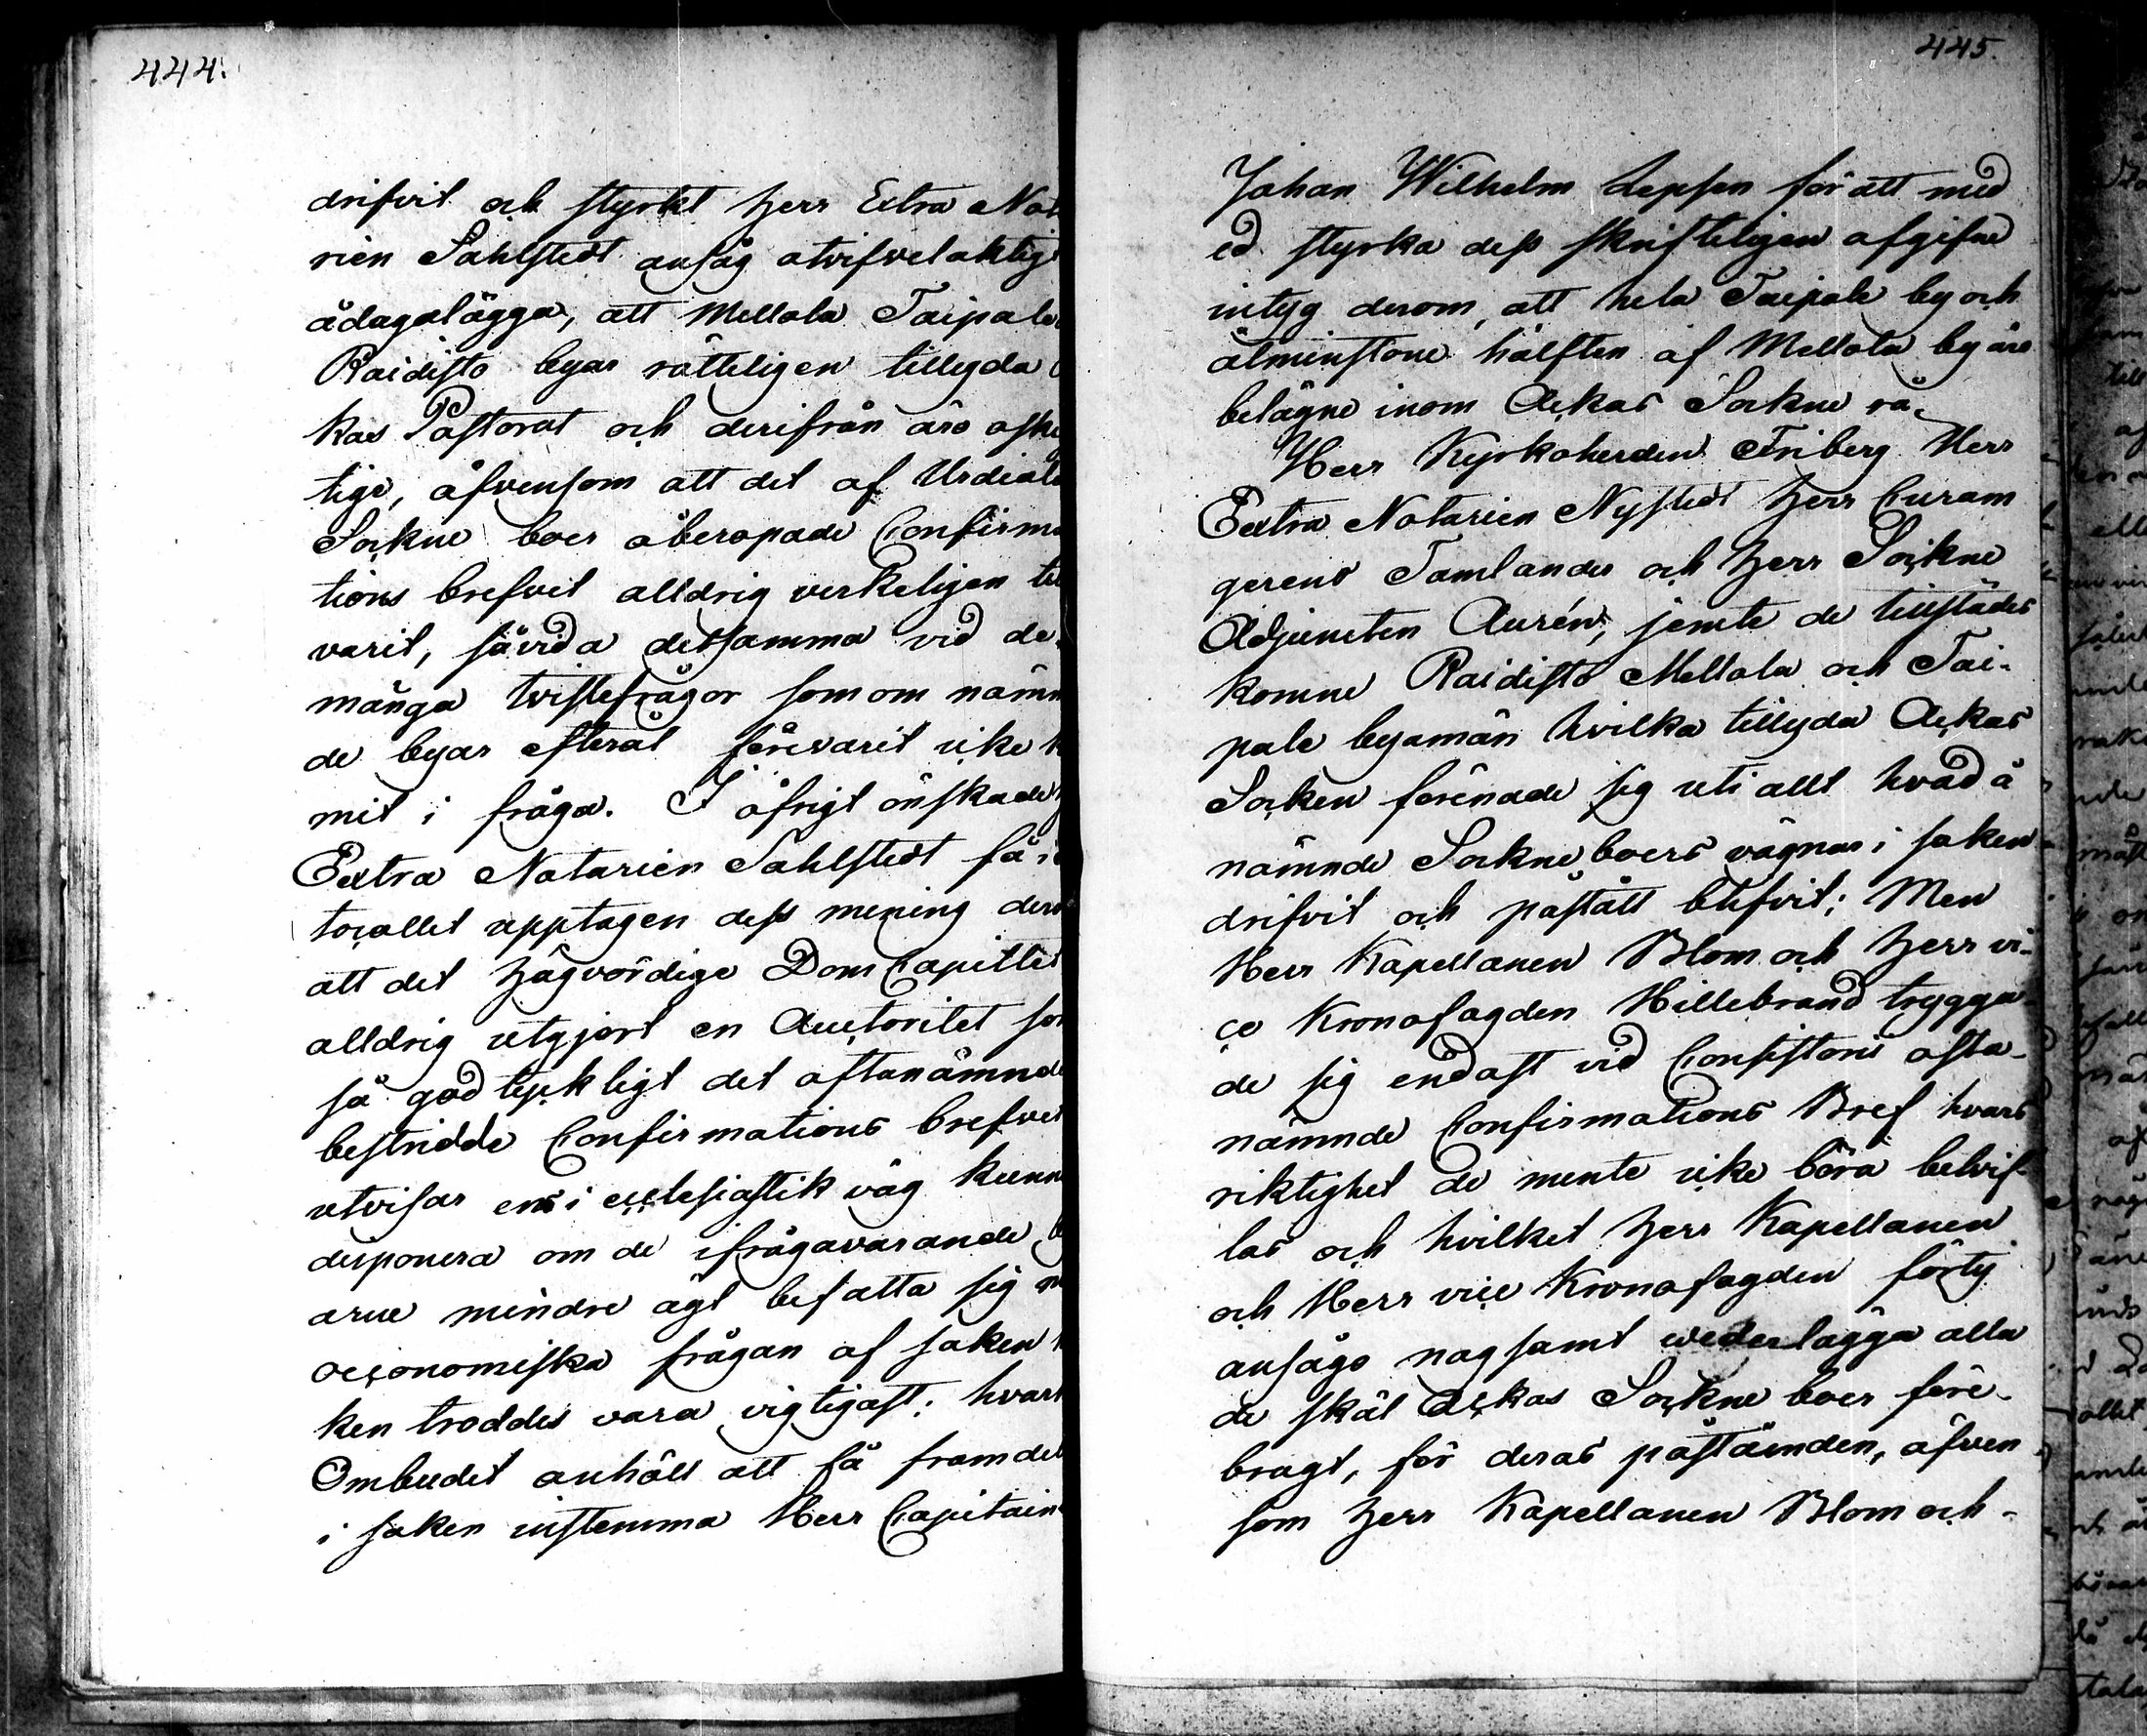 444.
drifvit och styrkt Herr Extra No
rien Sahlstedt ansåg otvifvelaktigt
ådagalägga, att Mellola Taipale
Raidisto byar rätteligen tillyda
kas Pastorat och derifrån äro
tige, äfvensom att det af Urdiala
Sockne boer åberopade Confirma
tions brefvet alldrig verkeligen til
varit, såvida detsamma vid de
många tvistefrågor som om nämn
de byar efteråt förevarit icke
mit i fråga. I öfrigt önskade
Extra Notarien Sahlstedt få i
tocollet upptagen dess mening der
att det högvördige Dom Capitlet
alldrig utgjort en Auctoritet so
så godtyckligt det oftanämnde
bestridde Confirmations brefvet
utvisar ens i ecclesiastik väg kunn
disponera om de ifrågavarande
arne mindre ägt befatta sig
oeconomiska frågan af saken
ken troddes vara vigtigast; hvar
Ombudet anhöll att få framdel
i saken instemma Herr Capitain
445.
Johan Wilhelm Lepsen för att med
ed styrka dess skrifteligen afgifne
intyg derom, att hela Taipale by och
åtminstone hälften af Mellola by äro
belägne inom Ackas Sockne rå.
Herr Kyrkoherden Friberg Herr
Extra Notarien Nystedt Herr Curam
gerens Tamlander och Herr Sockne
Adjuncten Aurén, jemte de tillstädes
komne Raidisto Mellola och Tai-
pale byamän hvilka tillyda Ackas
Socken förenade sig uti allt hvad å
nämnde Sockne boers vägnar i saken
drifvit och påstått blifvit; Men
Herr Kapellanen Blom och Herr vi-
ce Kronofogden Hillebrand trygga-
de sig endast vid Consistorii ofta-
nämnde Confirmations Bref hvars
riktighet de mente icke böra betvif-
las och hvilket Herr Kapellanen
och Herr vice Kronofogden förty
ansågo nogsamt wederlägga alla
de skäl Ackas Sockne boer före-
bragt, för deras påståenden, äfven
som Herr Kapellanen Blom och-